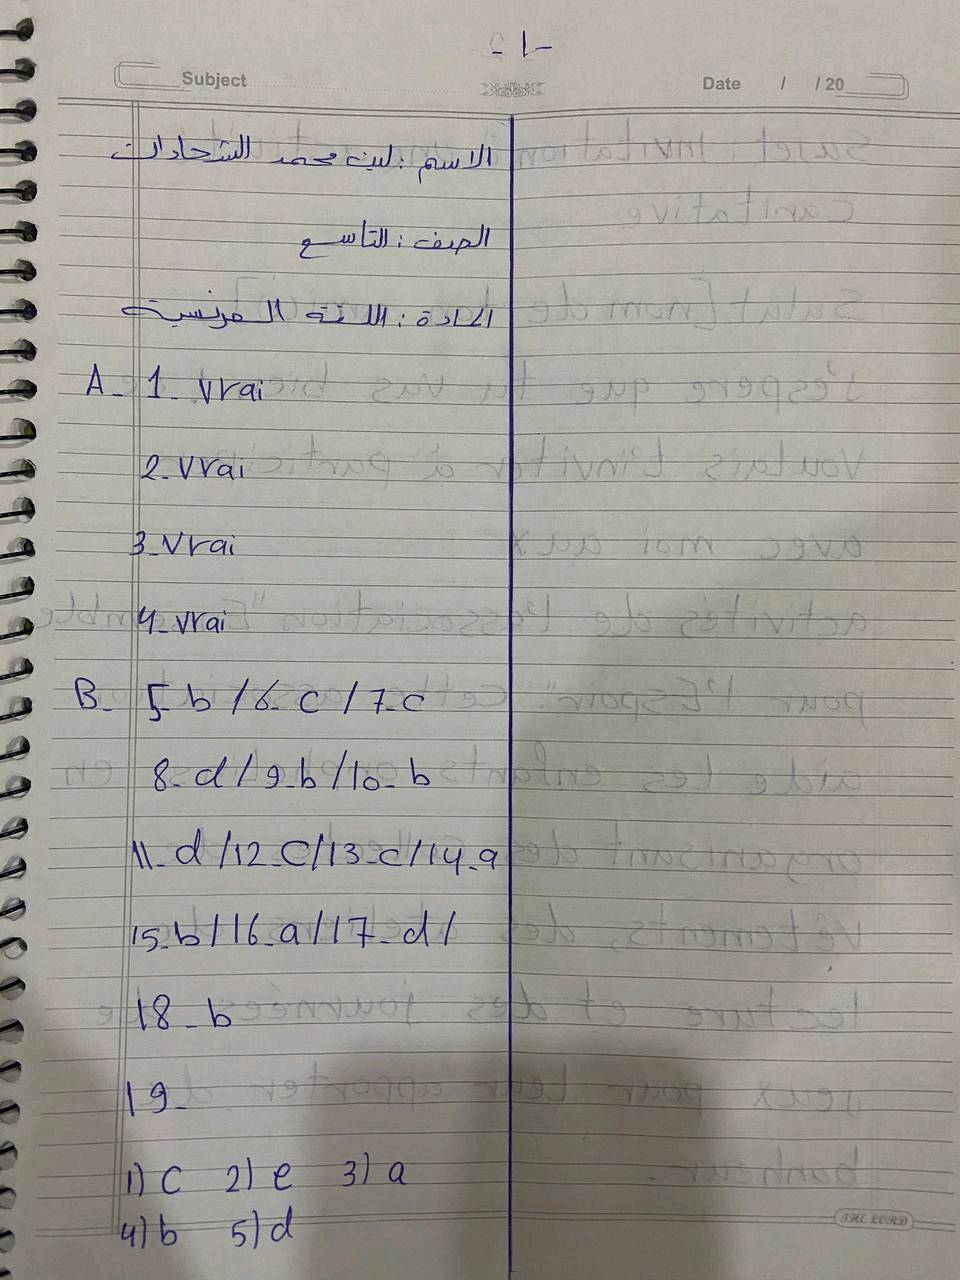 -1-
Subject
Date / / 20
الاسم : لين محمد الشحادات
الصف : التاسع
المادة : اللغة الفرنسية
A- 1- vrai
2- vrai
3- vrai
4- vrai
B- 5- b / 6- c / 7- c
8- d / 9- b / 10- b
11- d / 12- C / 13- c / 14- a
15- b / 16- a / 17- d /
18- b
19-
1) C 2) e 3) a
4) b 5) d
THE LORD